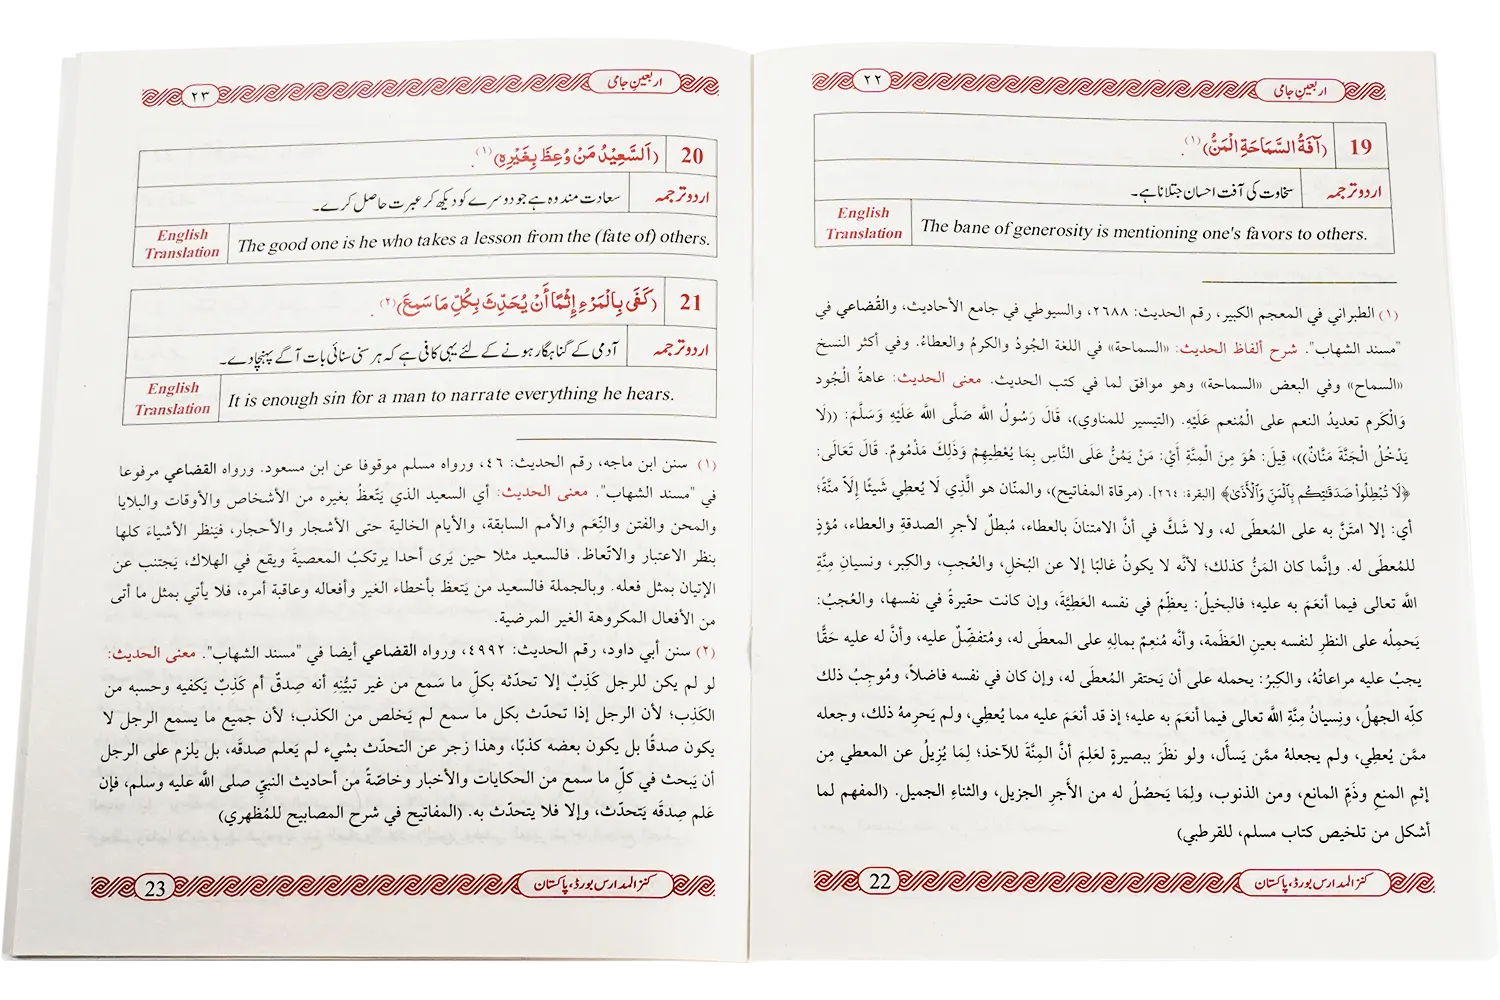 اربعینِ جامی ٢٢
19 (آفَةُ السَّمَاحَةِ الْمَنُّ)(١).
اردو ترجمہ سخاوت کی آفت احسان جتلانا ہے۔
English Translation The bane of generosity is mentioning one's favors to others.
(١) الطبراني في المعجم الكبير، رقم الحديث: ٢٦٨٨، والسيوطي في جامع الأحاديث، والقُضاعي في
"مسند الشهاب". شرح ألفاظ الحديث: «السماحة» في اللغة الجُودُ والكرمُ والعطاءُ. وفي أكثر النسخ
«السماح» وفي البعض «السماحة» وهو موافق لما في كتب الحديث. معنى الحديث: عاهةُ الْجُود
وَالْكَرم تعديدُ النعم على الْمُنعم عَلَيْهِ. (التيسير للمناوي)، قَالَ رَسُولُ الله صَلَّى الله عَلَيْهِ وَسَلَّمَ: ((لَا
يَدْخُلُ الْجَنَّةَ مَنَّانٌ))، قِيلَ: هُوَ مِنَ الْمِنَّةِ أَيْ: مَنْ يَمُنُّ عَلَى النَّاسِ بِمَا يُعْطِيهِمْ وَذَلِكَ مَذْمُومٌ. قَالَ تَعَالَى:
﴿لَا تُبْطِلُوا صَدَقَٰتِكُم بِٱلْمَنِّ وَٱلْأَذَىٰ﴾ [البقرة: ٢٦٤]. (مرقاة المفاتيح)، والمنّان هو الَّذِي لَا يُعطِي شَيئًا إلَّا مَنَّةً؛
أي: إلا امتَنَّ به على المُعطَى له، ولا شَكَّ في أنَّ الامتنانَ بالعطاء، مُبطلٌ لأجرِ الصدقةِ والعطاء، مُؤذٍ
للمُعطَى له. وإنَّما كان المَنُّ كذلك؛ لأنَّه لا يكونُ غالبًا إلا عن البُخلِ، والعُجبِ، والكِبر، ونسيانِ مِنَّةِ
الله تعالى فيما أنعَمَ به عليه؛ فالبخيلُ: يعظِّمُ في نفسه العَطِيَّةَ، وإن كانت حقيرةً في نفسها، والعُجبُ:
يَحمِلُه على النظرِ لنفسه بعينِ العَظَمة، وأنَّه مُنعِمٌ بمالِهِ على المعطَى له، ومُتفضِّلٌ عليه، وأنَّ له عليه حَقًّا
يجبُ عليه مراعاتُهُ، والكِبرُ: يحمله على أن يَحتقر المُعطَى له، وإن كان في نفسه فاضلًا، ومُوجِبُ ذلك
كلِّه الجهلُ، ونِسيانُ مِنَّةِ الله تعالى فيما أنعَمَ به عليه؛ إذ قد أنعَمَ عليه مما يُعطِي، ولم يَحرِمهُ ذلك، وجعله
ممَّن يُعطِي، ولم يجعلهُ ممَّن يَسألُ، ولو نظَرَ ببصيرةٍ لعَلِمَ أنَّ المِنَّةَ للآخذ؛ لِمَا يُزِيلُ عن المعطي مِن
إثمِ المنعِ وذَمِّ المانع، ومن الذنوب، ولِمَا يَحصُلُ له من الأجرِ الجزيل، والثناءِ الجميل. (المفهم لما
أشكل من تلخيص كتاب مسلم، للقرطبي)
کنز المدارس بورڈ، پاکستان 22
اربعینِ جامی ٢٣
20 (اَلسَّعِيْدُ مَنْ وُعِظَ بِغَيْرِهِ)(١).
اردو ترجمہ سعادت مند وہ ہے جو دوسرے کو دیکھ کر عبرت حاصل کرے۔
English Translation The good one is he who takes a lesson from the (fate of) others.
21 (كَفَى بِالْمَرْءِ إِثْمًا أَنْ يُحَدِّثَ بِكُلِّ مَا سَمِعَ)(٢).
اردو ترجمہ آدمی کے گناہگار ہونے کے لئے یہی کافی ہے کہ ہر سنی سنائی بات آگے پہنچا دے۔
English Translation It is enough sin for a man to narrate everything he hears.
(١) سنن ابن ماجه، رقم الحديث: ٤٦، ورواه مسلم موقوفا عن ابن مسعود. ورواه القضاعي مرفوعا
في "مسند الشهاب". معنى الحديث: أي السعيد الذي يَتّعظُ بغيره من الأشخاص والأوقات والبلايا
والمحن والفتن والنِّعَم والأمم السابقة، والأيام الخالية حتى الأشجار والأحجار، فيَنظر الأشياءَ كلها
بنظر الاعتبار والاتّعاظ. فالسعيد مثلا حين يَرى أحدا يرتكبُ المعصيةَ ويقع في الهلاك، يَجتنب عن
الإتيان بمثل فعله. وبالجملة فالسعيد من يَتعظ بأخطاء الغير وأفعاله وعاقبة أمره، فلا يأتي بمثل ما أتى
من الأفعال المكروهة الغير المرضية.
(٢) سنن أبي داود، رقم الحديث: ٤٩٩٢، ورواه القضاعي أيضا في "مسند الشهاب". معنى الحديث:
لو لم يكن للرجل كَذِبٌ إلا تحدّثه بكلِّ ما سَمع من غير تبيُّنِهِ أنه صِدقٌ أم كَذِبٌ يَكفيه وحسبه من
الكَذِب؛ لأن الرجل إذا تحدّث بكل ما سمع لم يَخلص من الكذب؛ لأن جميع ما يسمع الرجل لا
يكون صدقًا بل يكون بعضه كذبًا، وهذا زجر عن التحدّث بشيء لم يَعلم صدقَه، بل يلزم على الرجل
أن يَبحث في كلِّ ما سمع من الحكايات والأخبار وخاصّةً من أحاديث النبيِّ صلى الله عليه وسلم، فإن
عَلم صِدقَه يَتحدّث، وإلا فلا يتحدّث به. (المفاتيح في شرح المصابيح للمُظهري)
کنز المدارس بورڈ، پاکستان 23